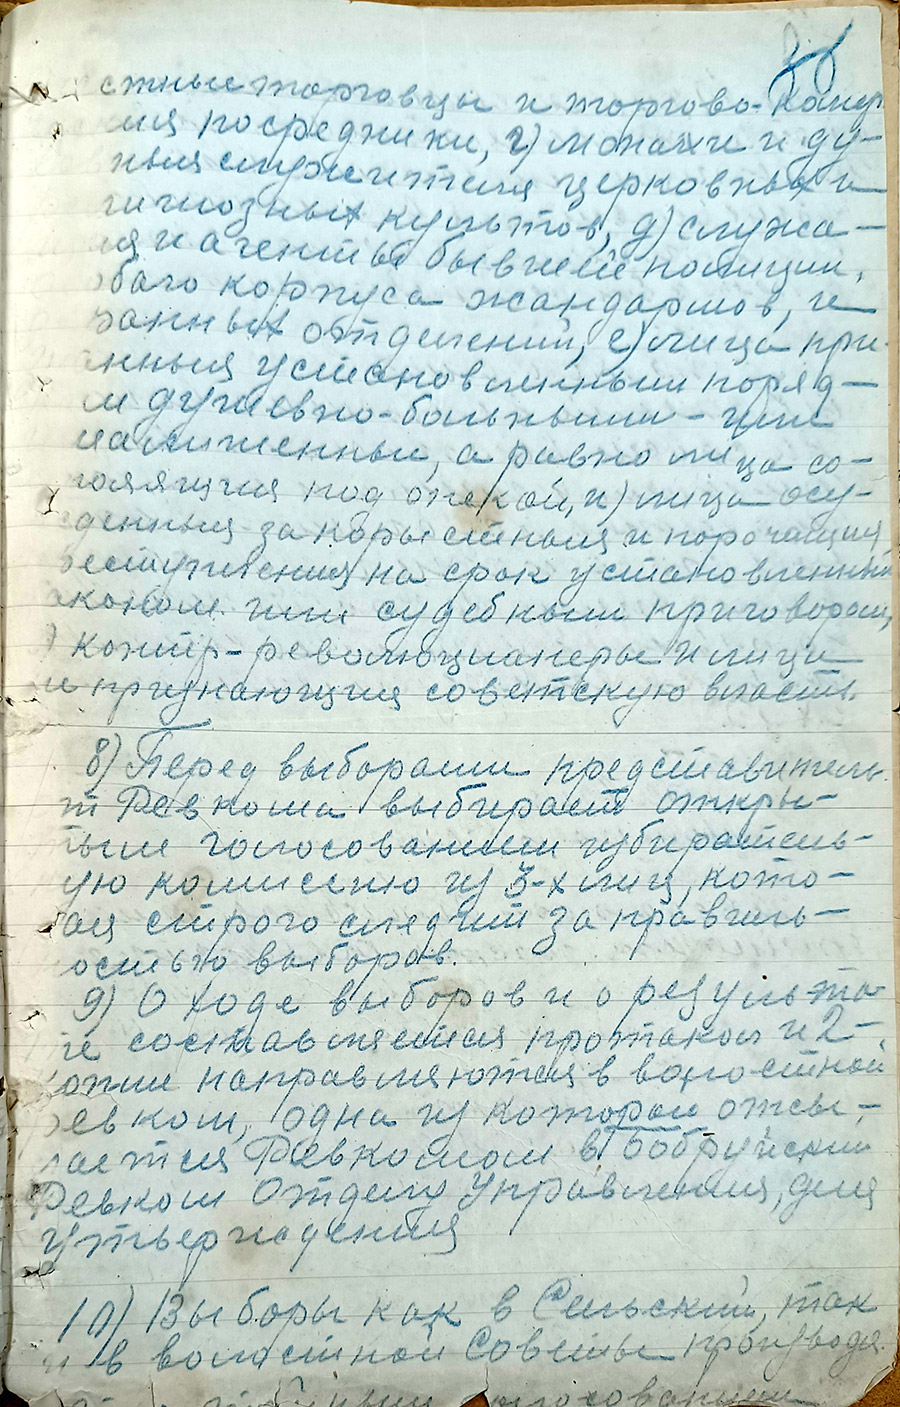 стные торговцы и торгово-комер
ния посредники, г) монахи и ду-
ныя служители церковных и
гиозных культов, д) служа-
ия и агенты бывшей полиции,
баго корпуса жандармов, и
ранных отделений, е) лица при-
нныя установленным поряд-
м душевно-больными - или
малишенные, а равно лица со-
тоящия под опекой, и) лица осу-
жденныя за корыстныя и порочащия
реступления на срок установленный
аконом или судебным приговором,
) контр-революционеры и лица
не признающия советскую власть.
8) Перед выборами представитель
от Ревкома выбирает откры-
тым голосованием избиратель-
ную комиссию из 3-х лиц, кото-
рая строго следит за правиль-
ностью выборов.
9) О ходе выборов и о результа-
те составляется протокол и 2-
копии направляются в волостной
ревком, одна из которой отсы-
лается Ревкомом в Бобруйский
Ревком Отделу Управления, для
утверждения
10) Выборы как в Сельский, так
и в волостной Советы производя
голосованием